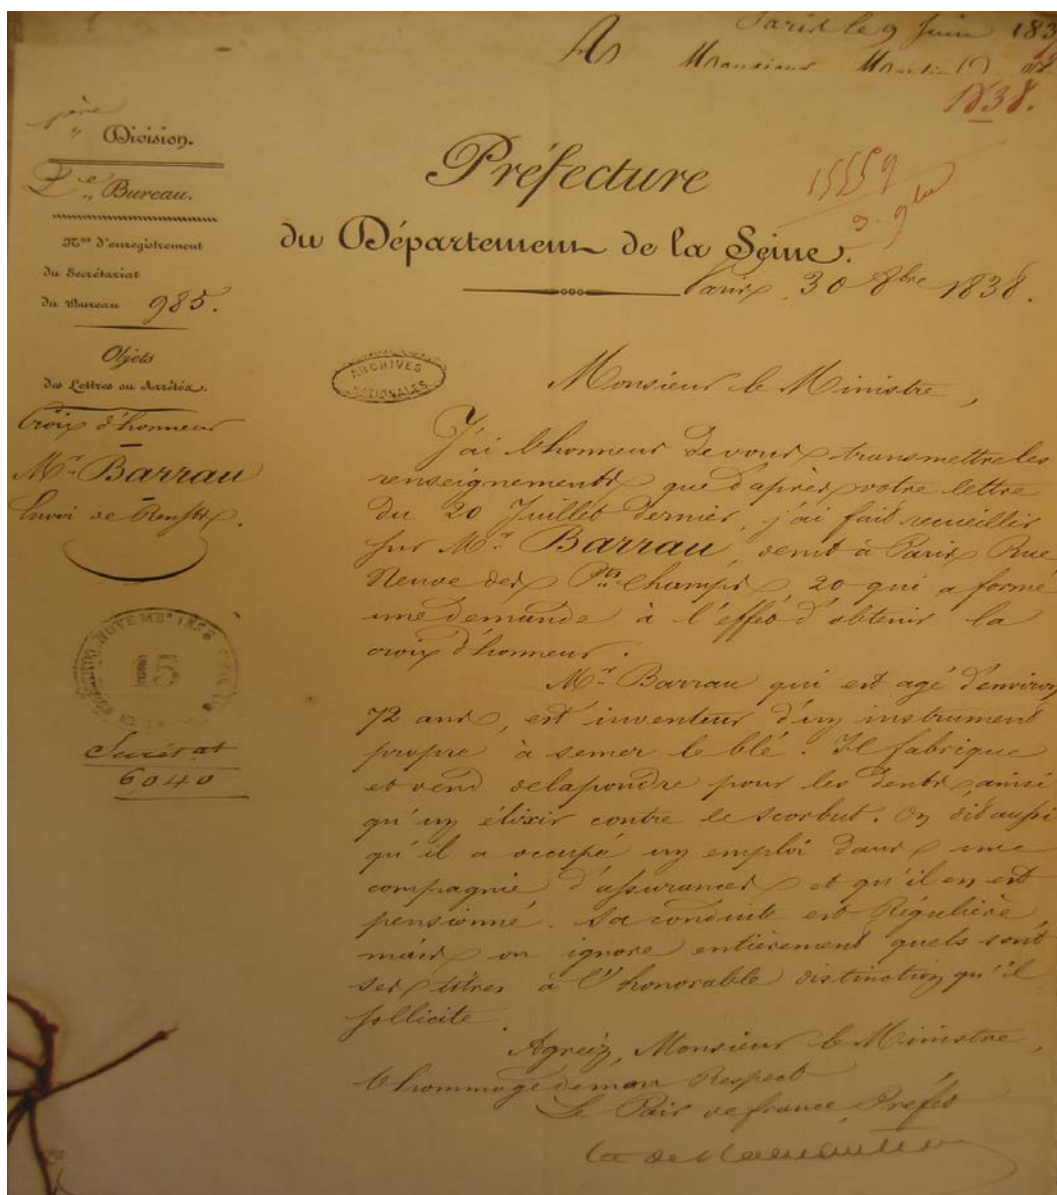 Paris le 9 Juin 183
Monsieur
1838.
1ère Division.
2e Bureau.
Nos d'enregistrement
du Secrétariat
du Bureau 985.
Objets
des Lettres ou Arrêtés.
Croix d'honneur
Mr. Barrau
Envoi de Renstx.
6040
Préfecture
du Département de la Seine.
15559
Paris, 30 8bre 1838.
ARCHIVES
NATIONALES
Monsieur le Ministre,
J'ai l'honneur de vous transmettre les
renseignements que d'après votre lettre
du 20 Juillet dernier, j'ai fait recueillir
sur Mr. Barrau, demt à Paris Rue
Neuve des Pts. Champs, 20 qui a formé
une demande à l'effet d'obtenir la
croix d'honneur.
Mr. Barrau qui est agé d'environ
72 ans, est inventeur d'un instrument
propre à semer le blé. Il fabrique
et vend de la poudre pour les dents ainsi
qu'un élixir contre le scorbut. On dit aussi
qu'il a occupé un emploi dans une
compagnie d'assurances et qu'il en est
pensionné. Sa conduite est Régulière,
mais on ignore entièrement quels sont
ses titres à l'honorable distinction qu'il
sollicite.
Agréez, Monsieur le Ministre,
l'hommage de mon Respect
Le Pair de france, Préfet